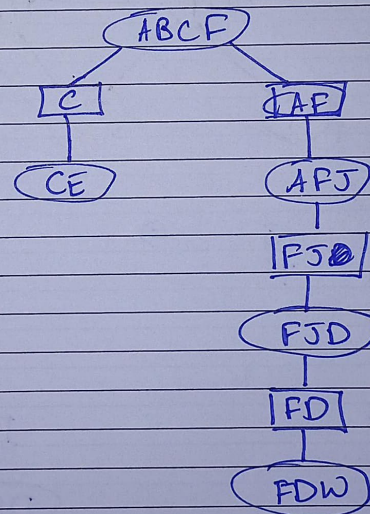 ABCF
C AF
CE AFJ
FJ
FJD
FD
FDW